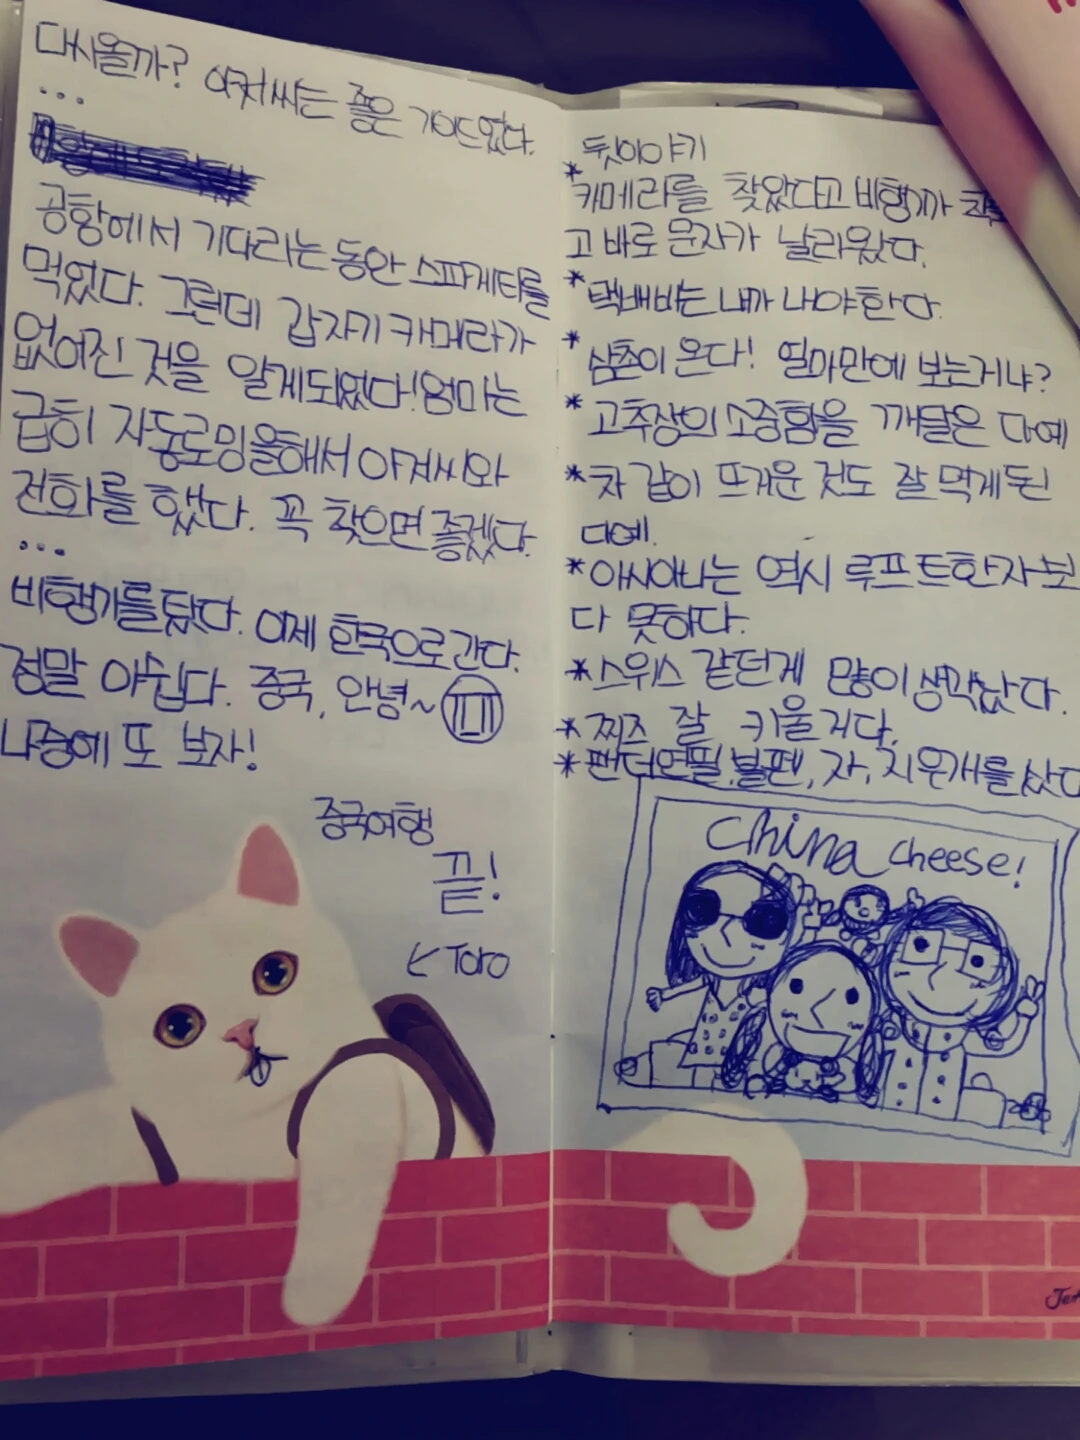 다시올까? 아저씨는 좋은 가이드였다.
...
공항에서 기다리는 동안 스파게티를
먹었다. 그런데 갑자기 카메라가
없어진 것을 알게되었다! 엄마는
급히 자동로밍을해서 아저씨와
전화를 했다. 꼭 찾으면 좋겠다.
...
비행기를 탔다. 이제 한국으로 간다.
정말 아쉽다. 중국, 안녕~
나중에 또 보자!
중국여행
끝!
Toro
뒷이야기
* 카메라를 찾았다고 비행기가
고 바로 문자가 날라왔다.
* 택배비는 내가 내야한다.
* 삼촌이 온다! 얼마만에 보는거냐?
* 고추장의 소중함을 깨달은 다예
* 차 같이 뜨거운 것도 잘 먹게된
다예.
* 아시아나는 역시 루프트한자보
다 못하다.
* 스위스 같던게 많이 생각났다.
* 찌즈 잘 키울거다.
* 팬더연필, 볼펜, 자, 지우개를 샀다
China cheese!